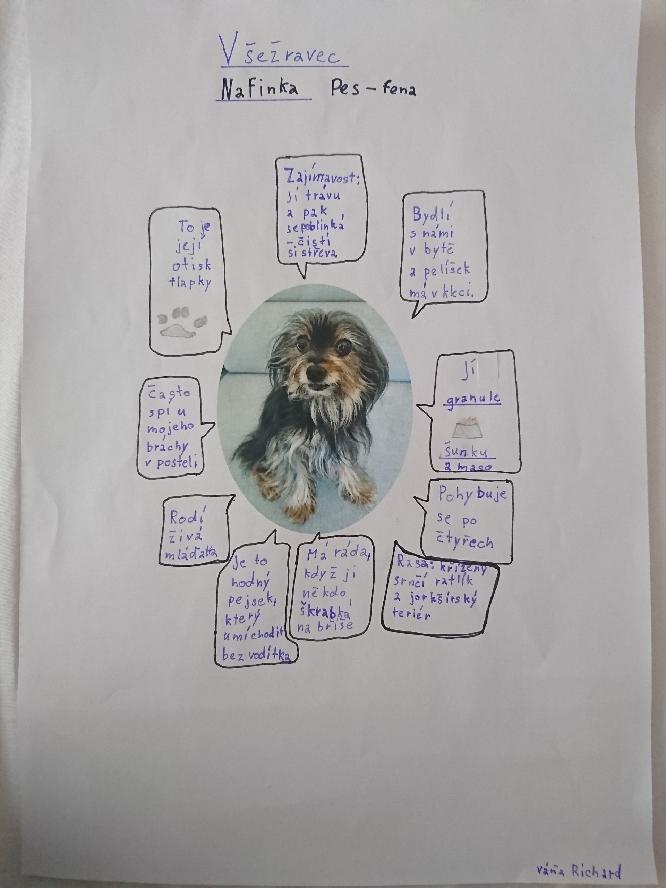 Všežravec
Nafinka Pes – fena
Zajímavost:
jí trávu
a pak
se poblinká
– čistí
si střeva
To je
její
otisk
tlapky
Bydlí
s námi
v bytě
a pelíšek
má v kleci.
Často
spí u
mojeho
bráchy
v posteli
Jí
granule
šunku
a maso
Rodí
živá
mláďata
Pohybuje
se po
čtyřech
Je to
hodný
pejsek,
který
umí chodit
bez vodítka
Má ráda,
když ji
někdo
škrabká
na břiše
Rasa: křížený
srnčí ratlík
a jorkšírský
teriér
Váňa Richard